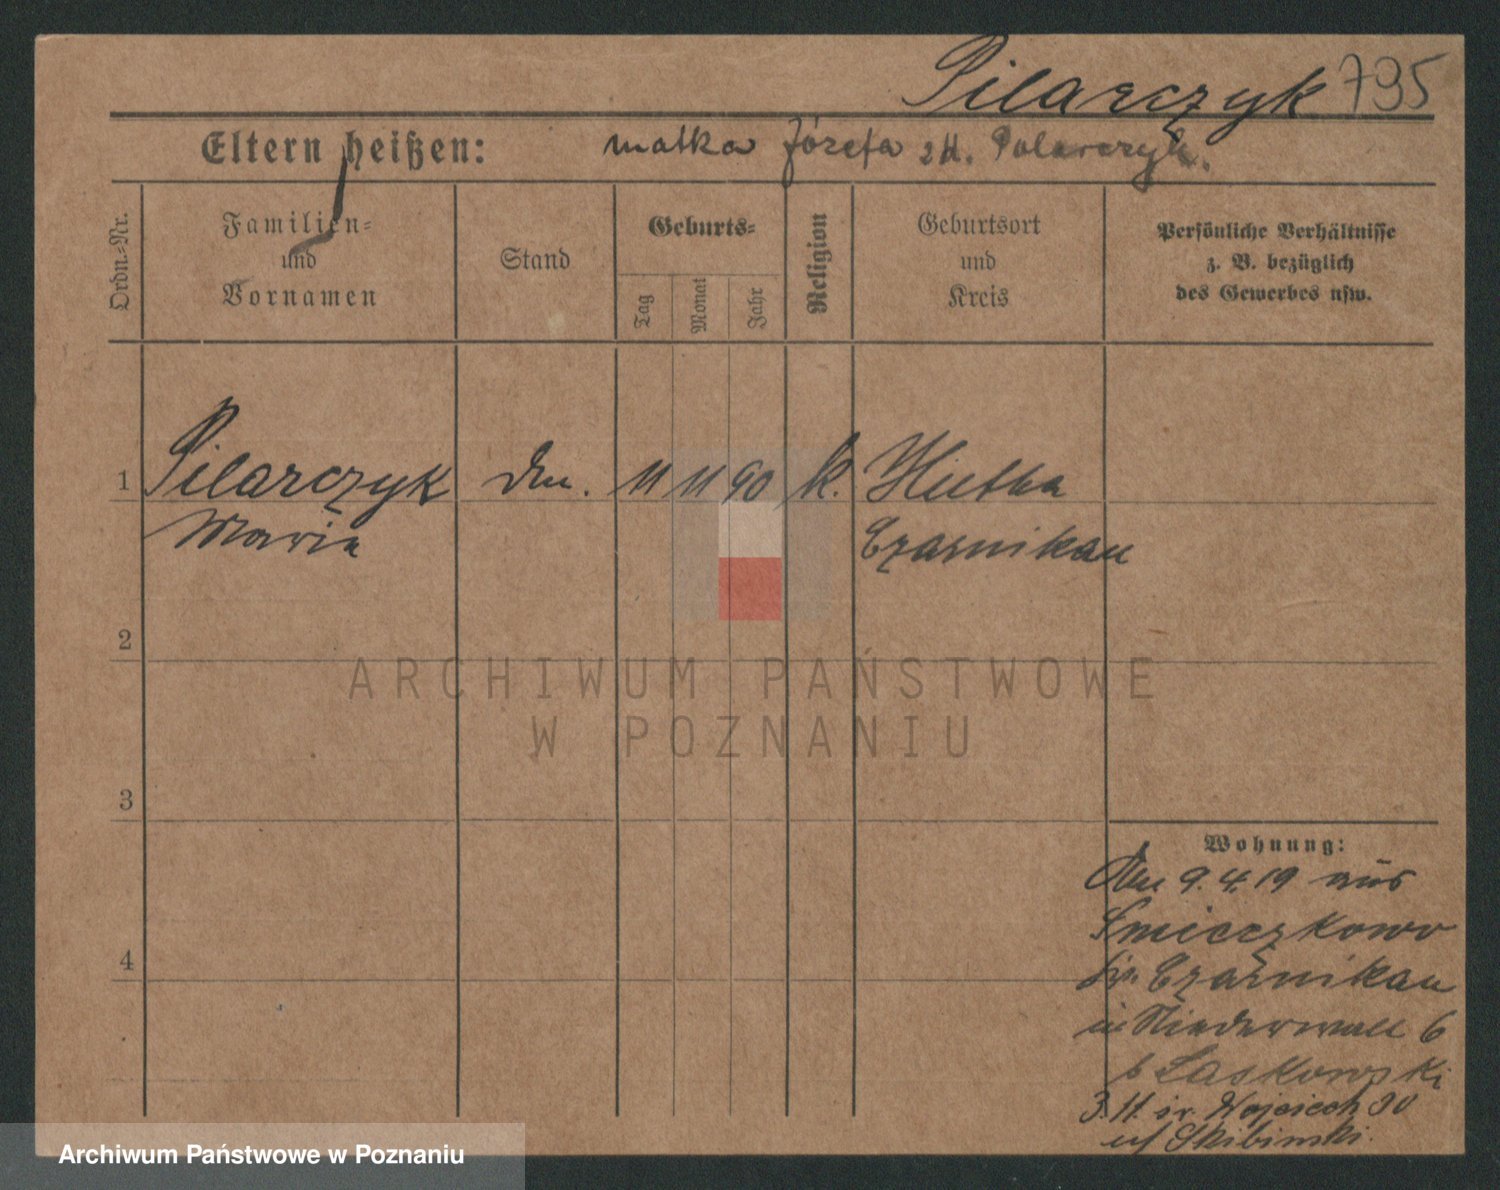 Pilarczyk 795
Eltern heißen: matka Józefa zd. Polarczyk.
Ordn.-Nr.
Familien-
und
Vornamen
Stand
Geburts-
Tag
Monat
Jahr
Religion
Geburtsort
und
Kreis
Persönliche Verhältnisse
z. B. bezüglich
des Gewerbes usw.
1 Pilarczyk 11 11 90 k. Hutta
Maria Czarnikau
2
ARCHIWUM PAŃSTWOWE
W POZNANIU
3
Wohnung:
Den 9.4.19 aus
Smieczkowo
Kr. Czarnikau
in Niederwall 6
b Laskowski
3. 11. św. Wojciech 30
Skibinski.
4
Archiwum Państwowe w Poznaniu